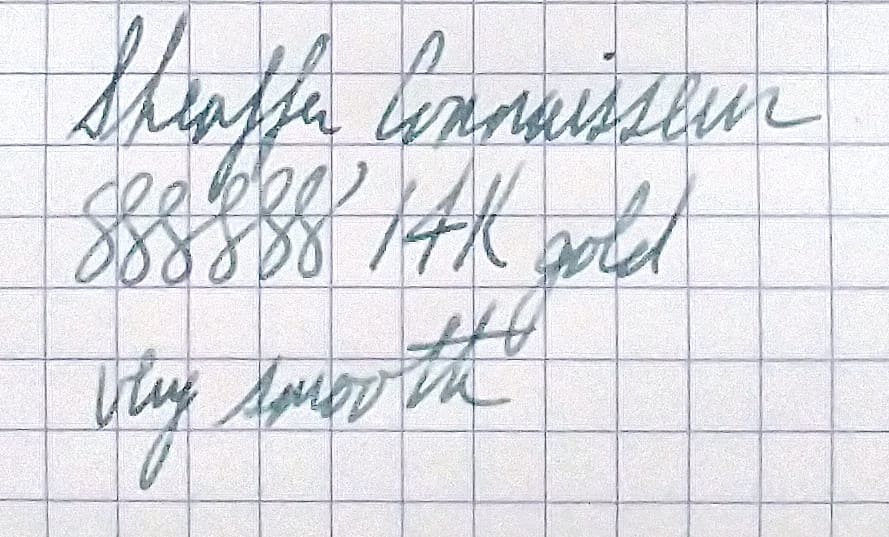 Sheaffer Connaisseur
888888' 14K gold
very smooth